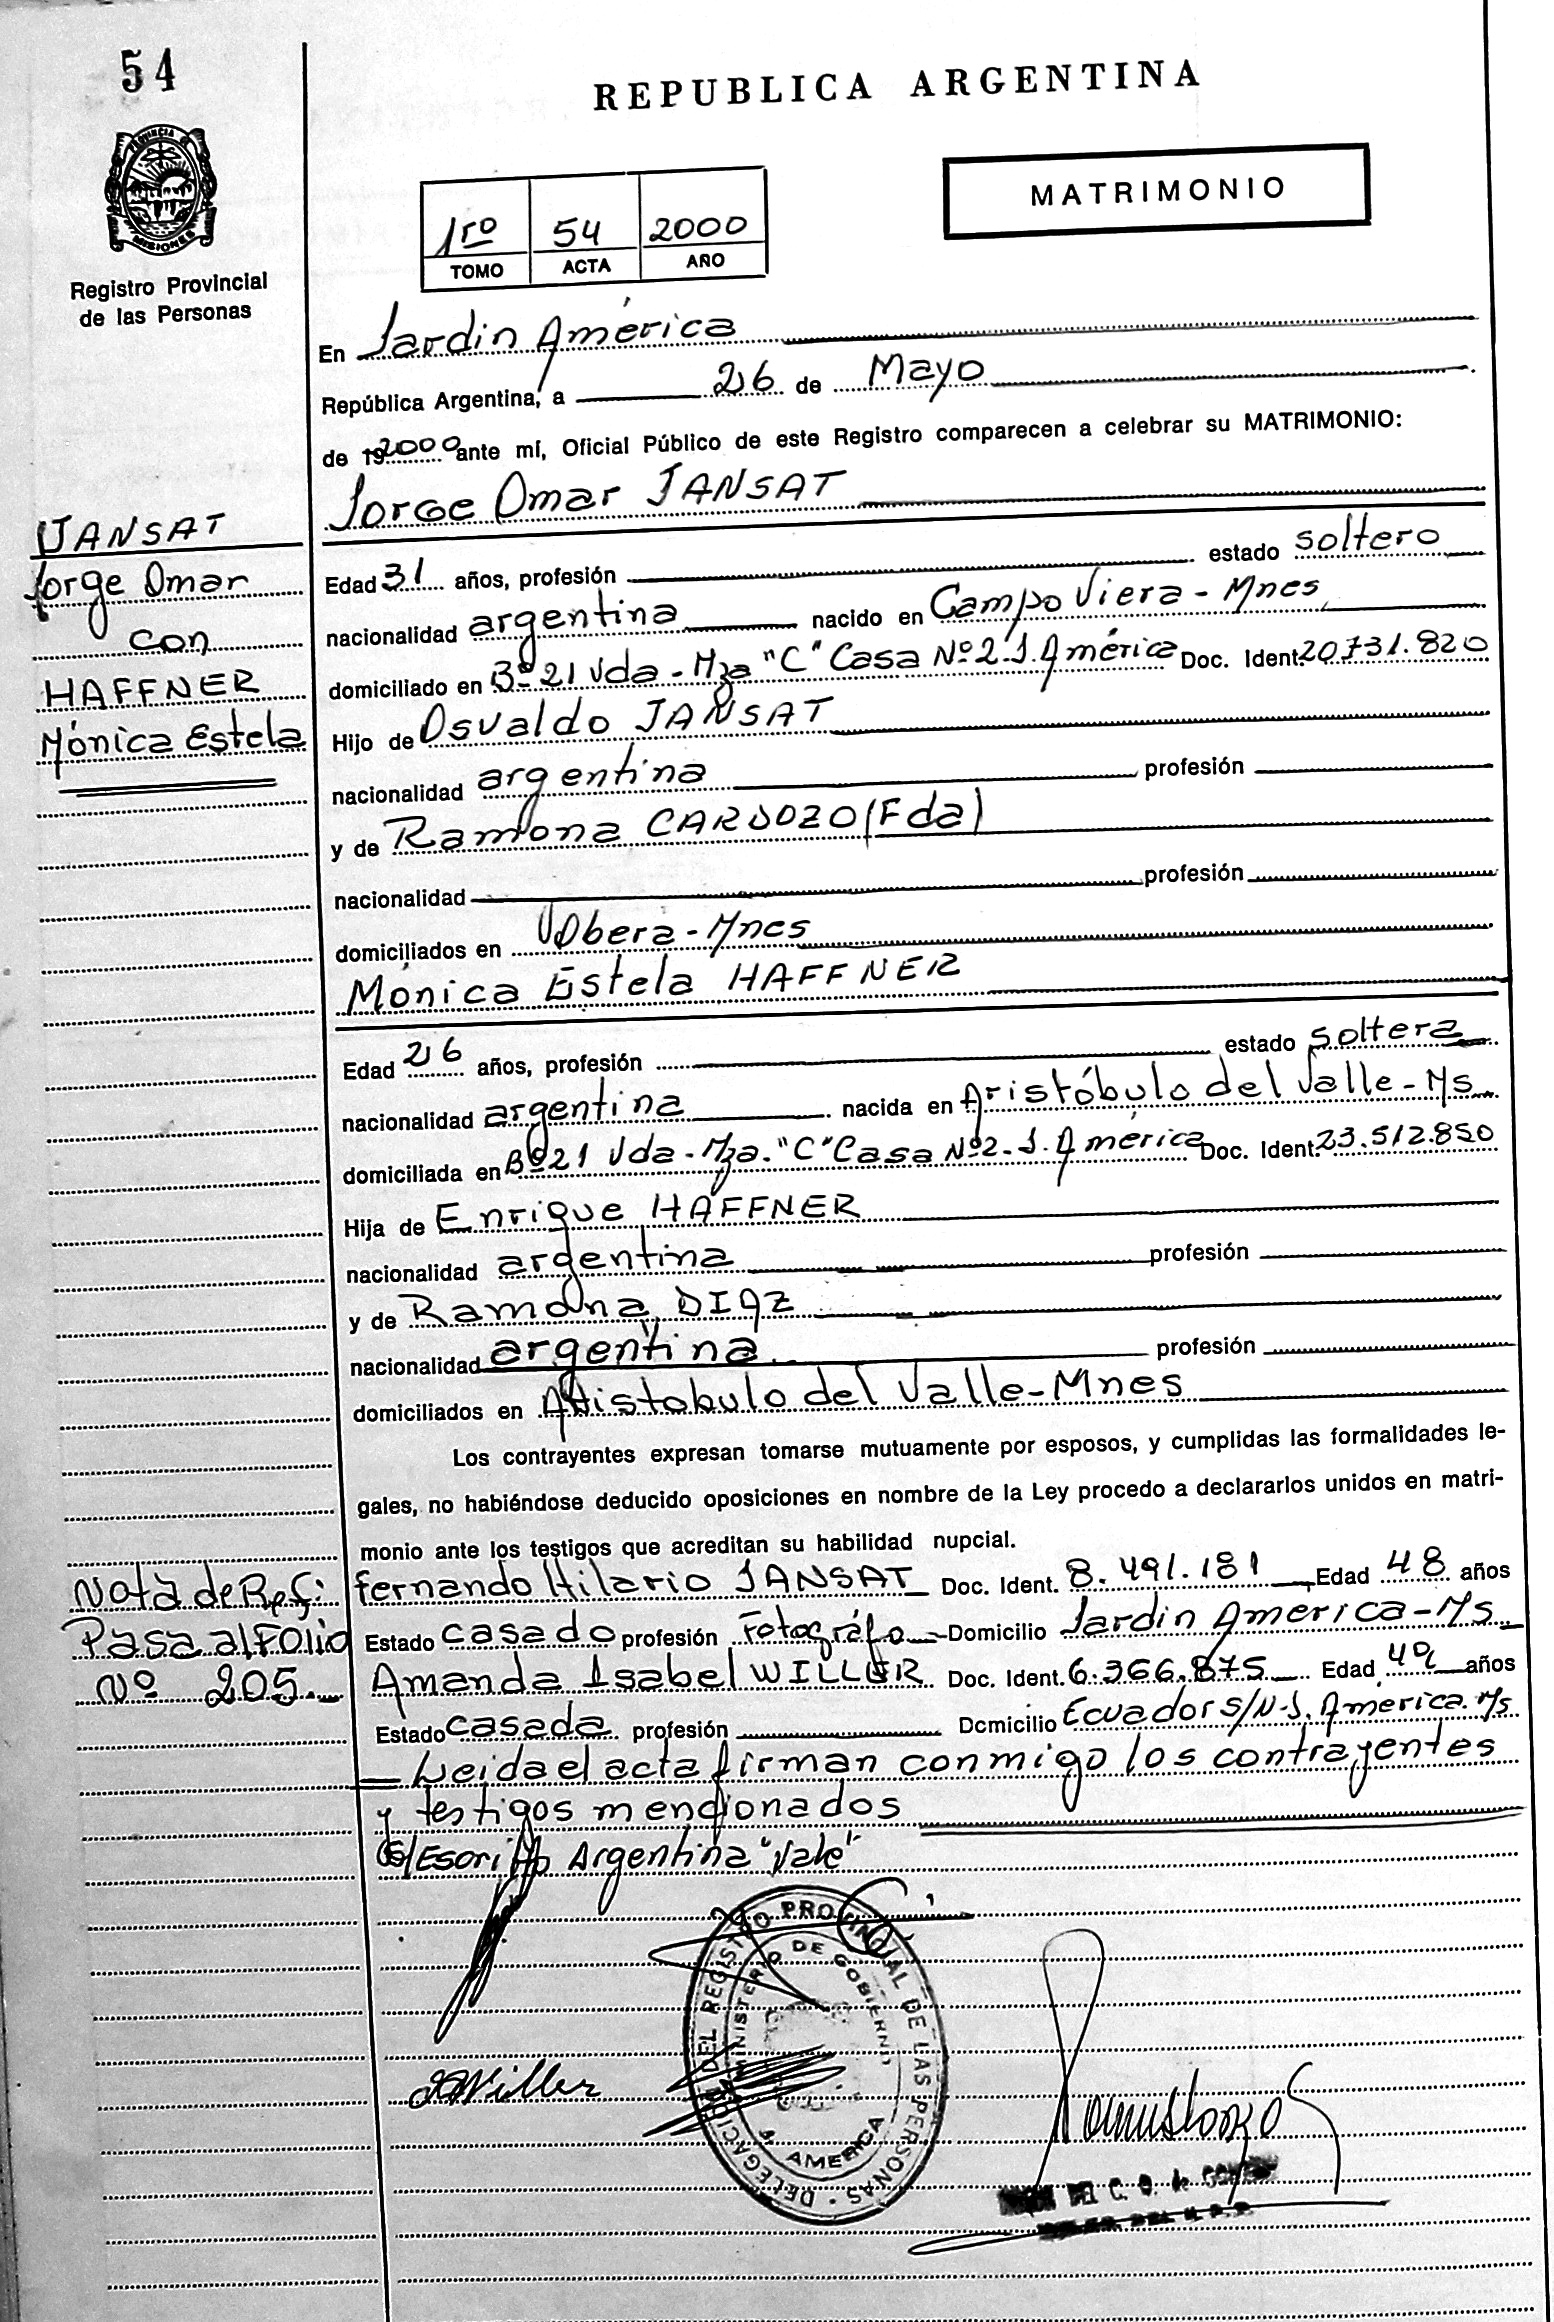 54
REPUBLICA ARGENTINA
MATRIMONIO
PROVINCIA DE
MISIONES
Registro Provincial
de las Personas
1ro 54 2000
TOMO ACTA AÑO
En Jardin América
República Argentina, a 26 de Mayo
de 192000 ante mí, Oficial Público de este Registro comparecen a celebrar su MATRIMONIO:
Jorge Omar JANSAT
JANSAT
Jorge Omar
con
HAFFNER
Mónica Estela
Edad 31 años, profesión estado soltero
nacionalidad argentina nacido en Campo Viera - Mnes
domiciliado en Bº 21 Vda - Mza "C" Casa Nº 2 - J. América Doc. Ident. 20731.820
Hijo de Osvaldo JANSAT
nacionalidad argentina profesión
y de Ramona CARDOZO (Fda)
nacionalidad profesión
domiciliados en Obera - Mnes
Mónica Estela HAFFNER
Edad 26 años, profesión estado soltera
nacionalidad argentina nacida en Aristóbulo del Valle - Ms
domiciliada en Bº 21 Vda - Mza. "C" Casa Nº 2 - J. América Doc. Ident. 23.512.850
Hija de Enrique HAFFNER
nacionalidad argentina profesión
y de Ramona DIAZ
nacionalidad argentina profesión
domiciliados en Aristobulo del Valle - Mnes
Los contrayentes expresan tomarse mutuamente por esposos, y cumplidas las formalidades le-
gales, no habiéndose deducido oposiciones en nombre de la Ley procedo a declararlos unidos en matri-
monio ante los testigos que acreditan su habilidad nupcial.
Nota de Ref:
Pasa al Folio
Nº 205.
fernando Hilario JANSAT Doc. Ident. 8.491.181 Edad 48 años
Estado casado profesión Fotográfo Domicilio Jardin America - Ms
Amanda Isabel WILLER Doc. Ident. 6.366.875 Edad 49 años
Estado casada profesión Domicilio Ecuador S/N - J. América. Ms
Leida el acta firman conmigo los contrayentes
y testigos mencionados
S/Escrito Argentina "Vale"
DELEGACION DEL REGISTRO PROVINCIAL DE LAS PERSONAS
MINISTERIO DE GOBIERNO
J. AMERICA